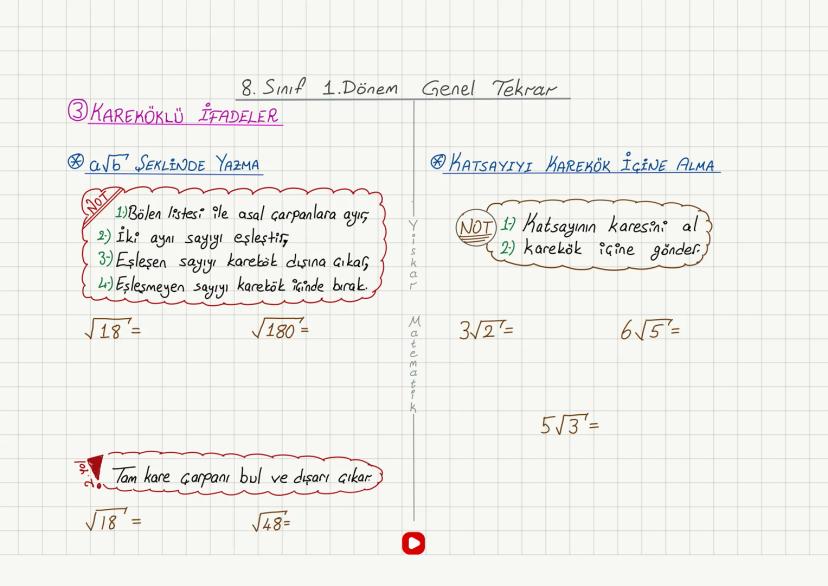 8. Sınıf 1.Dönem Genel Tekrar
③ KAREKÖKLÜ İFADELER
⊛ a√b ŞEKLİNDE YAZMA
NOT
1-) Bölen listesi ile asal çarpanlara ayır,
2-) İki aynı sayıyı eşleştir,
3-) Eşleşen sayıyı karekök dışına çıkar,
4-) Eşleşmeyen sayıyı karekök içinde bırak.
√18 =
√180 =
2.yol
! Tam kare çarpanı bul ve dışarı çıkar.
√18 =
√48 =
Yiskar Matematik
⊛ KATSAYIYI KAREKÖK İÇİNE ALMA
NOT
1-) Katsayının karesini al
2-) karekök içine gönder.
3√2 =
6√5 =
5√3 =